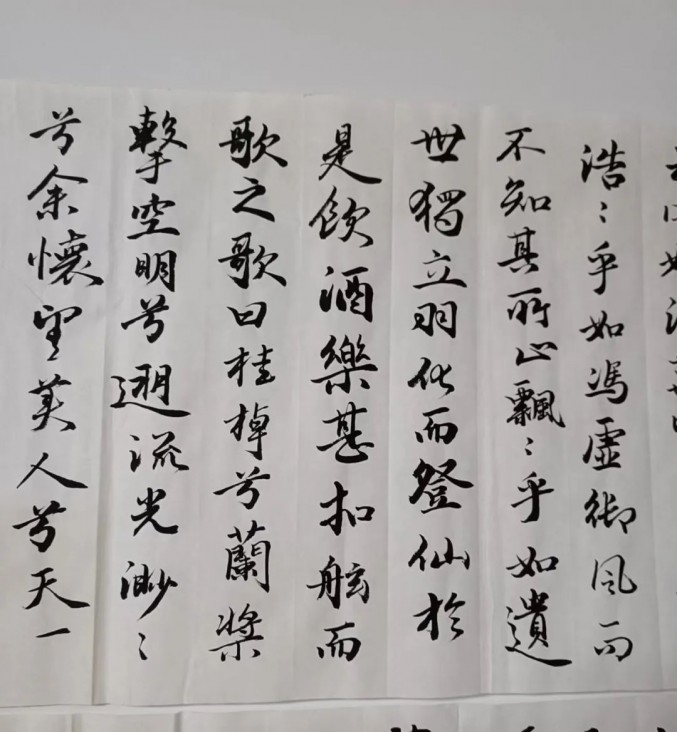 浩〻乎如馮虛御風而
不知其所止飄〻乎如遺
世獨立羽化而登仙於
是飲酒樂甚扣舷而
歌之歌曰桂棹兮蘭槳
擊空明兮遡流光渺〻
兮余懷望美人兮天一